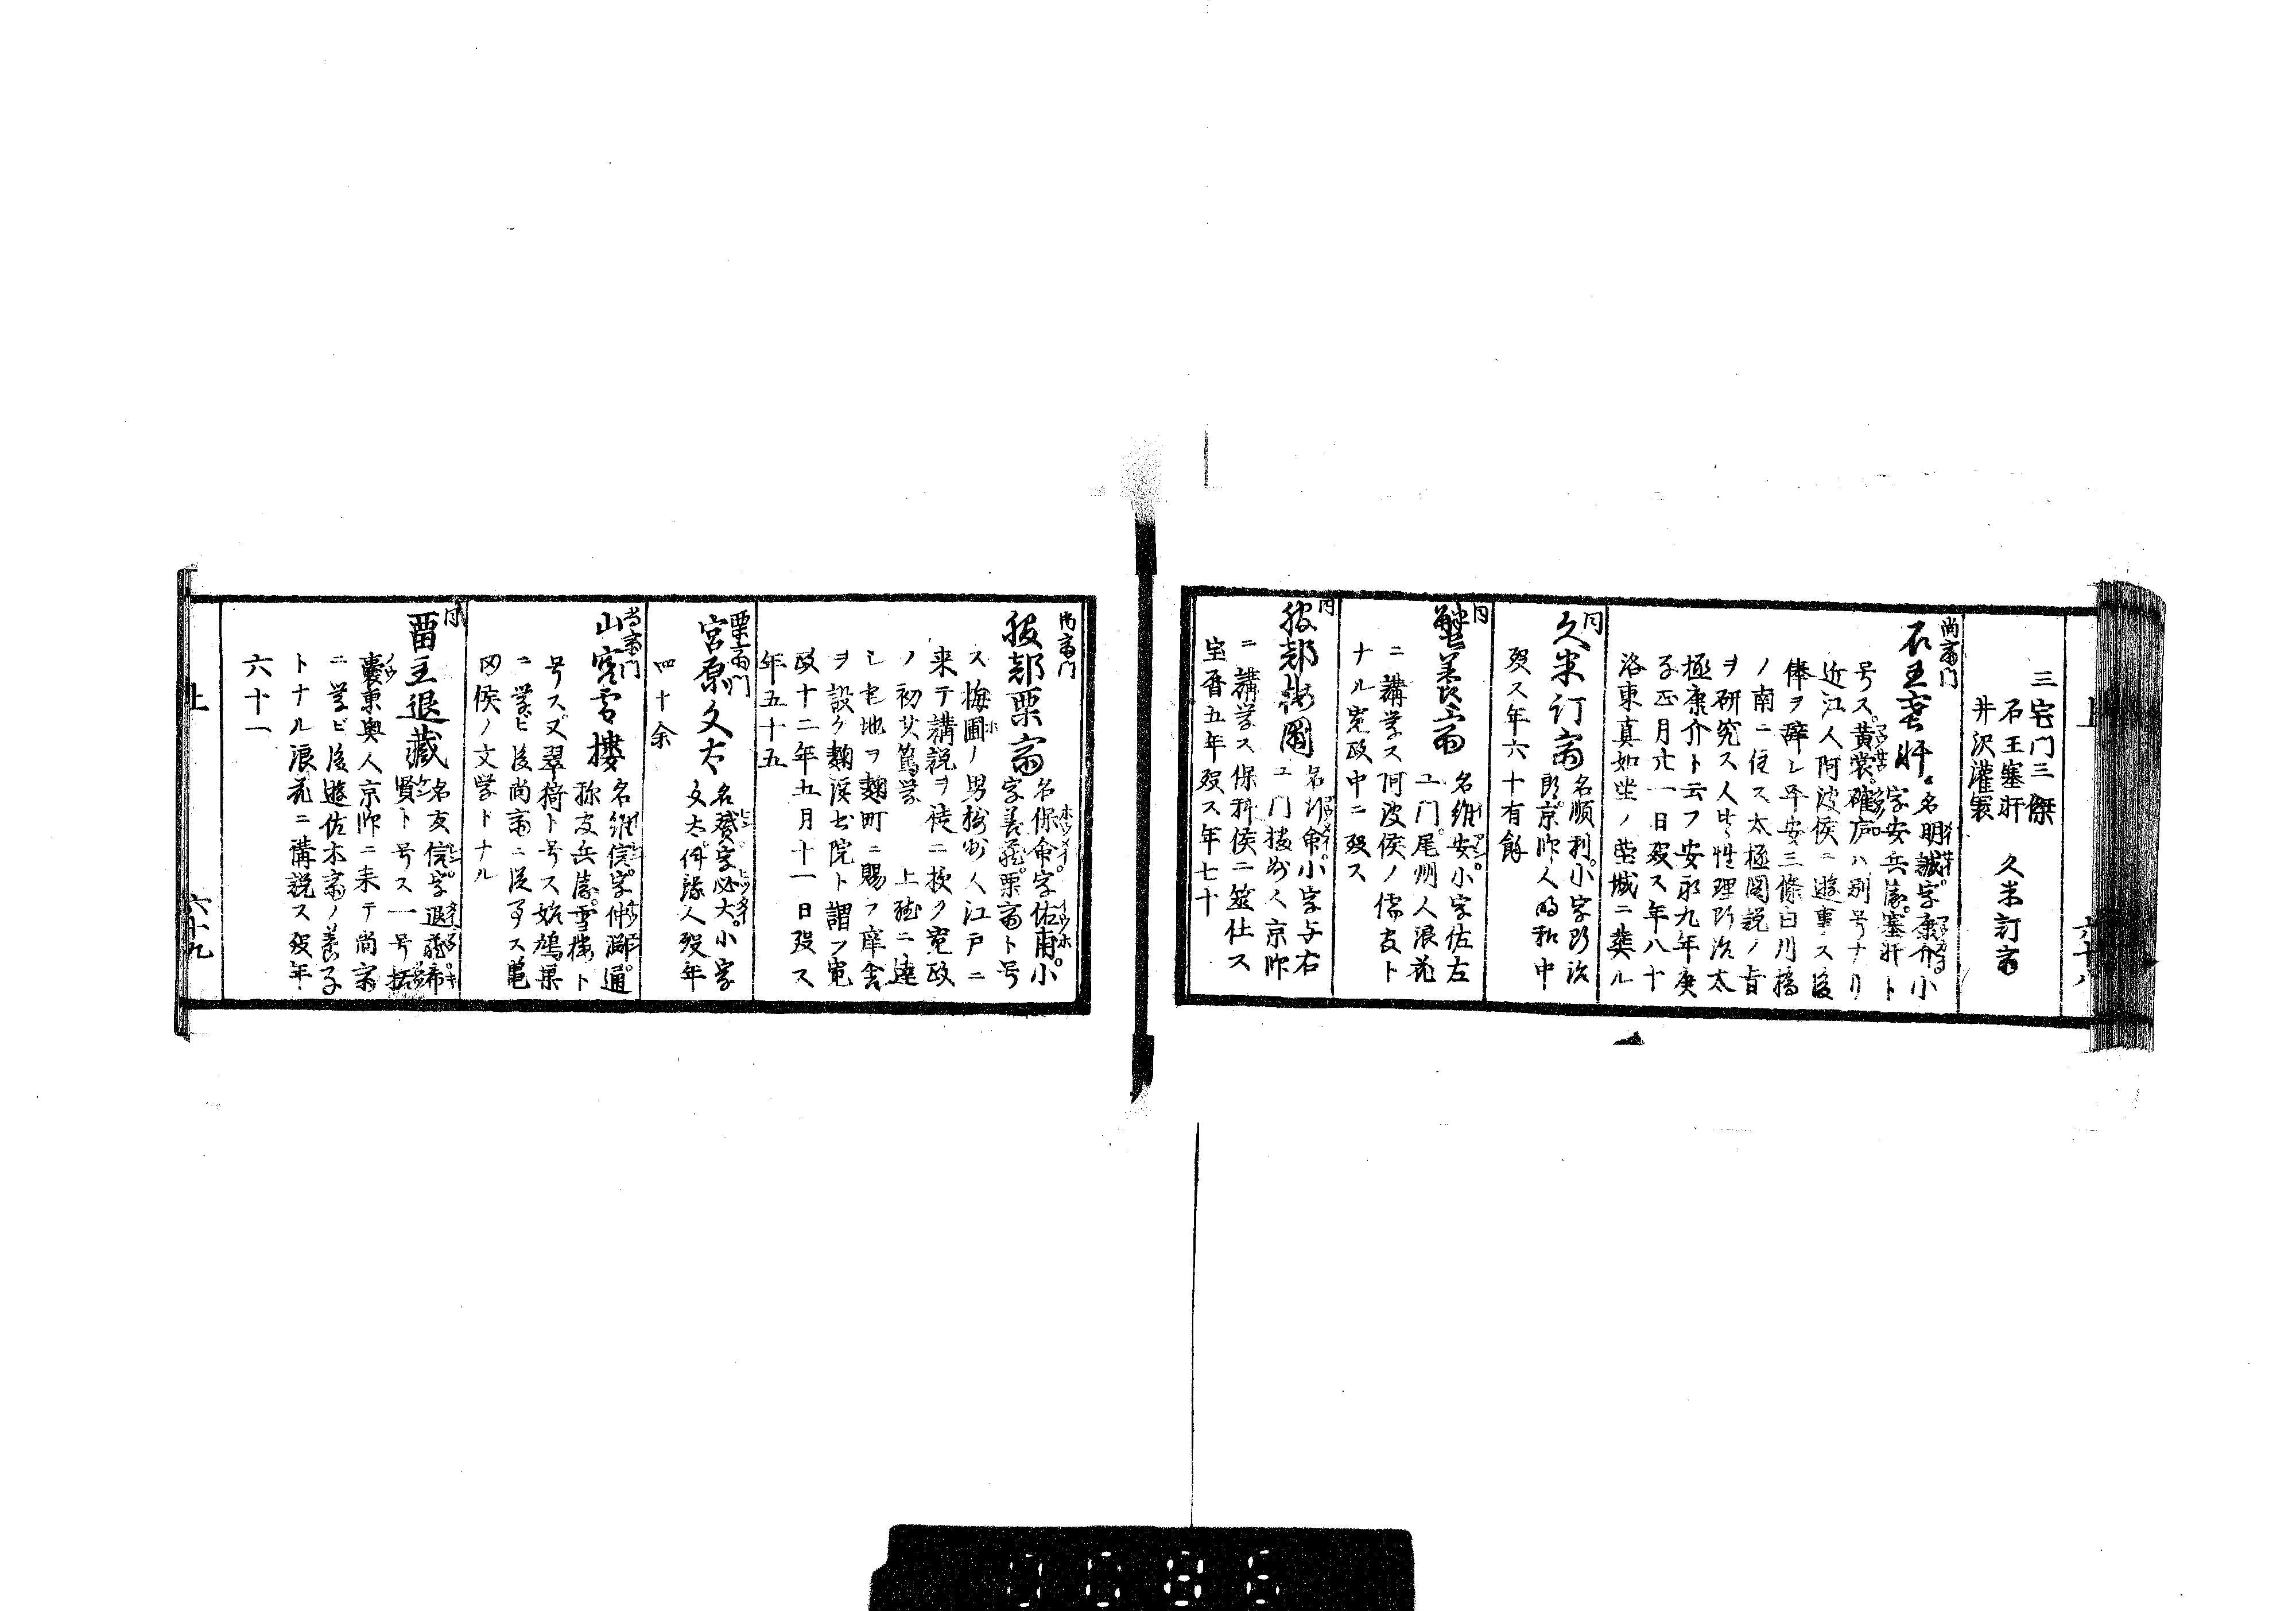 上 六十八
三宅門三傑
石王塞軒 久米訂斎
井沢灌園
尚斎門
石王塞軒 名明誠字康介小
字安兵衛塞軒ト
号ス黄裳確庐ハ別号ナリ
近江人阿波侯ニ遊事ス後
俸ヲ辞シ平安三條白川橋
ノ南ニ住ス太極図説ノ旨
ヲ研究ス人皆性理所治太
極康介ト云フ安永九年庚
子正月廿一日歿ス年八十
洛東真如堂ノ塋域ニ葬ル
同
久米訂斎 名順利小字断治
郎京師人明和中
歿ス年六十有餘
同
蟹養斎 名維安小字佐左
エ門尾州人浪花
ニ講学ス阿波侯ノ儒官ト
ナル寛政中ニ歿ス
同
服部梅圃 名 命小字与右
エ門摂州人京師
ニ講学ス保科侯ニ筮仕ス
宝暦五年歿ス年七十
尚斎門
服部栗斎 名保命字佑甫小
字善蔵栗斎ト号
ス梅圃ノ男摂州人江戸ニ
来テ講説ヲ徒ニ授ク寛政
ノ初其篤学 上聴ニ達
シ地ヲ麹町ニ賜フ庠舎
ヲ設ク麹渓書院ト謂フ寛
政十二年五月十一日歿ス
年五十五
栗斎門
宮原文太 名 字必大小字
文太 人歿年
四十余
尚斎門
山宮雪樓 名維信字仲淵通
称友兵衛雪楼ト
号ス又翠猗ト号ス始鳩巣
ニ学ビ後尚斎ニ従事ス亀
岡侯ノ文学トナル
同
留主退蔵 名友信字退蔵希
賢ト号ス一号括
嚢東奥人京師ニ来テ尚斎
ニ学ビ後遊佐木斎ノ養子
トナル浪花ニ講説ス歿年
六十一
上 六十九